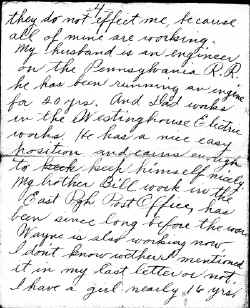 they do not effect me, because
all of mine are working.
My husband is an engineer
on the Pennsylvania R.R.
he has been running an engine
for 20 yrs. And Dad works
in the Westinghouse Electric
works. He has a nice easy
position and earns enough
to keek keep himself nicely
My brother Bill work in the
East Pgh Post Office, has
been since long before the war
Wayne is also working now
I don't know wether I mentioned
it in my last letter or not.
I have a girl nearly 16 yrs.